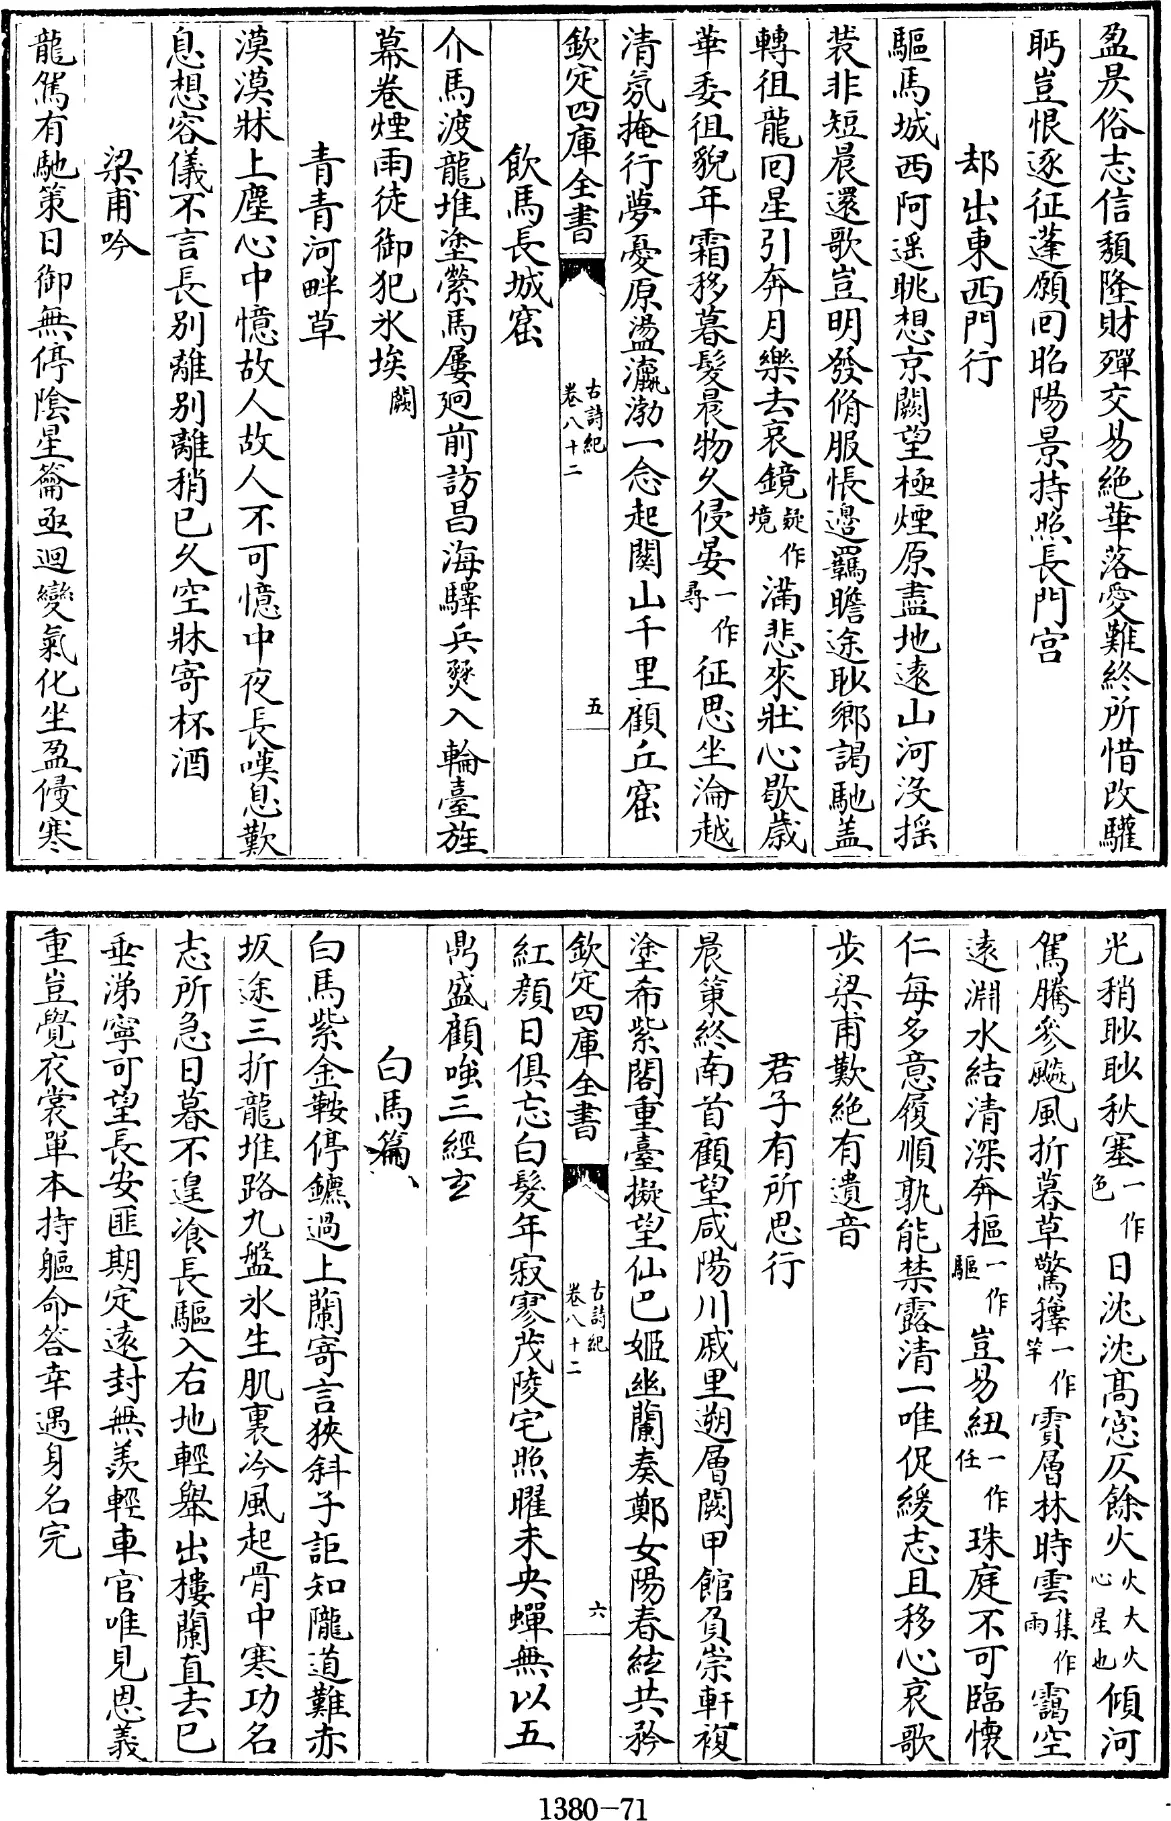 盈戾俗志信頹隆財殫交易絶華落愛難終所惜改驩
眄豈恨逐征蓬願回昭陽景持照長門宫
却出東西門行
驅馬城西阿遥眺想京闕望極煙原盡地逺山河没揺
裝非短晨還歌豈明發脩服悵邉羈瞻途耿鄉謁馳盖
轉徂龍囘星引奔月樂去哀鏡疑作境滿悲來壯心歇歲
華委徂貌年霜移暮髪晨物久侵晏一作尋征思坐淪越
清氛掩行夢憂原盪瀛渤一念起關山千里顧丘窟
欽定四庫全書
古詩紀
卷八十二
五
飲馬長城窟
介馬渡龍堆塗縈馬屢廻前訪昌海驛兵燹入輪臺旌
幕卷煙雨徒御犯氷埃闕
青青河畔草
漠漠牀上塵心中憶故人故人不可憶中夜長嘆息歎
息想容儀不言長别離别離稍已久空牀寄杯酒
梁甫吟
龍駕有馳策日御無停隂星籥亟迴變氣化坐盈侵寒
光稍耿耿秋塞一作色日沈沈髙窓仄餘火火大火心星也傾河
駕騰參飈風折暮草驚籜一作竿霣層林時雲集作雨靄空
逺淵水結清深奔樞一作驅豈易紐一作任珠庭不可臨懐
仁每多意履順孰能禁露清一唯促緩志且移心哀歌
步梁甫歎絶有遺音
君子有所思行
晨策終南首顧望咸陽川戚里遡層闕甲館負崇軒複
塗希紫閣重臺擬望仙巴姬幽蘭奏鄭女陽春絃共矜
欽定四庫全書
古詩紀
卷八十二
六
紅顔日俱忘白髮年寂寥茂陵宅照曜未央蟬無以五
鼎盛顧嗤三經𤣥
白馬篇
白馬紫金鞍停鑣過上蘭寄言狹斜子詎知隴道難赤
坂途三折龍堆路九盤氷生肌裏冷風起骨中寒功名
志所急日暮不遑飡長驅入右地輕舉出樓蘭直去已
垂涕寧可望長安匪期定逺封無羨輕車官唯見恩義
重豈覺衣裳單本持軀命答幸遇身名完
1380-71